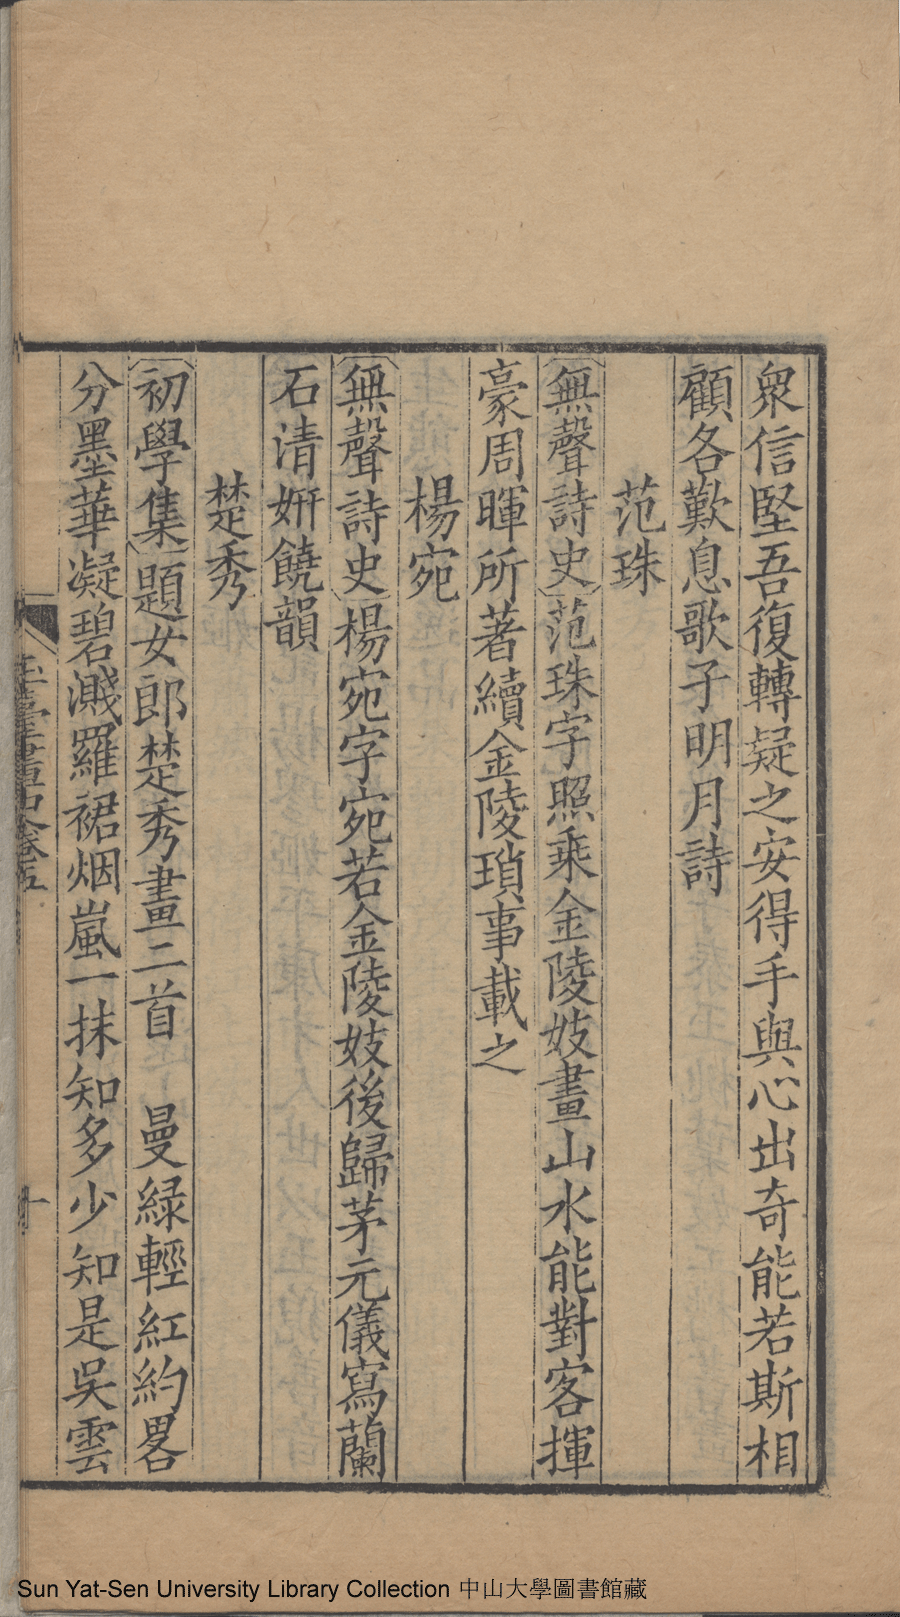 衆信堅吾復轉疑之安得手與心出奇能若斯相
顧各歎息歌子明月詩
范珠
無聲詩史范珠字照乘金陵妓畫山水能對客揮
豪周暉所著續金陵瑣事載之
楊宛
無聲詩史楊宛字宛若金陵妓後歸茅元儀寫蘭
石清妍饒韻
楚秀
初學集題女郎楚秀畫二首 曼綠輕紅約畧
分墨華凝碧濺羅裙烟嵐一抹知多少知是吳雲
玉臺畫史卷五
Sun Yat-Sen University Library Collection 中山大學圖書館藏